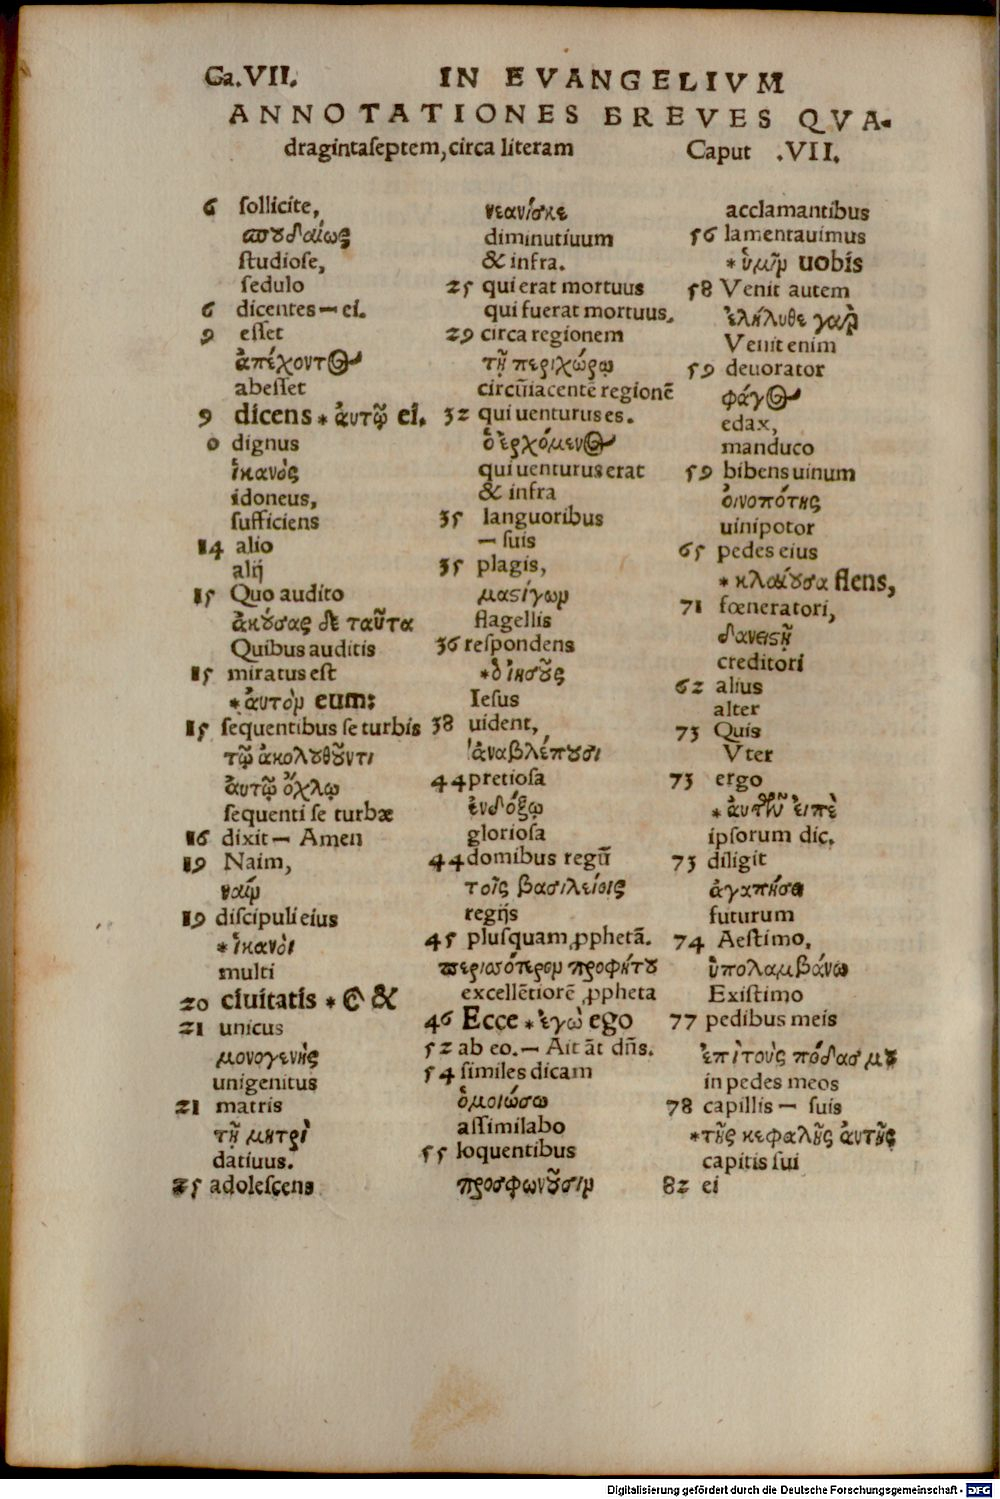 Ca.VII. IN EVANGELIVM
ANNOTATIONES BREVES QVA-
dragintaseptem, circa literam Caput .VII.
6 sollicite,
σπουδαίως
studiose,
sedulo
6 dicentes — ei.
9 esset
ἀπέχοντος
abesset
9 dicens * ἀυτῷ ei.
0 dignus
ἱκανὸς
idoneus,
sufficiens
14 alio
alij
15 Quo audito
ἀκούσας δὲ ταῦτα
Quibus auditis
15 miratus est
* ἀυτὸν eum:
15 sequentibus se turbis
τῷ ἀκολουθοῦντι
ἀυτῷ ὄχλῳ
sequenti se turbæ
16 dixit — Amen
19 Naim,
ναΐν
19 discipuli eius
* ἱκανὸι
multi
20 ciuitatis * &
21 unicus
μονογενὴς
unigenitus
21 matris
τῇ μητρὶ
datiuus.
25 adolescens
νεανίσκε
diminutiuum
& infra.
25 qui erat mortuus
qui fuerat mortuus.
29 circa regionem
τῇ περιχώρῳ
circūiacentē regionē
32 qui uenturus es.
ὁ ἐρχόμενος
qui uenturus erat
& infra
35 languoribus
— suis
35 plagis,
μαϛίγων
flagellis
36 respondens
* ὁ ἰησοῦς
Iesus
38 uident,
ἀναβλέπουσι
44 pretiosa
ἐνδόξῳ
gloriosa
44 domibus regū
τοῖς βασιλείοις
regijs
45 plusquam ꝓphetā.
περισσότερον προφήτου
excellētiorē ꝓpheta
46 Ecce * ἐγὼ ego
52 ab eo. — Ait āt dn̄s.
54 similes dicam
ὁμοιώσω
assimilabo
55 loquentibus
προσφωνοῦσιν
acclamantibus
56 lamentauimus
* ὑμῖν uobis
58 Venit autem
ἐλήλυθε γαρ
Venit enim
59 deuorator
φάγος
edax,
manduco
59 bibens uinum
ὀινοπότης
uinipotor
65 pedes eius
* κλαίουσα flens,
71 fœneratori,
δανειϛῇ
creditori
62 alius
alter
73 Quis
Vter
73 ergo
* ἀυτῶν ἐιπὲ
ipsorum dic.
73 diligit
ἀγαπήσει
futurum
74 Aestimo.
ὑπολαμβάνω
Existimo
77 pedibus meis
ἐπὶ τοὺς πόδας μου
in pedes meos
78 capillis — suis
* τῆς κεφαλῆς ἀυτῆς
capitis sui
82 ei
Digitalisierung gefördert durch die Deutsche Forschungsgemeinschaft - DFG